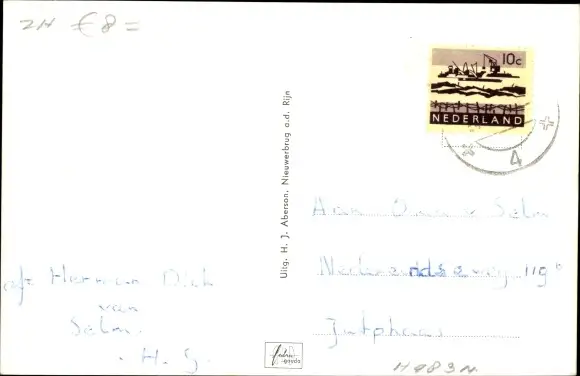 ZH € 8 =
10c
NEDERLAND
4
Uitg. H. J. Aberson, Nieuwerbrug a.d. Rijn
Aan Oma v Selm
119
Jutphaas
afz Herman Dick
van
Selm.
H983N.